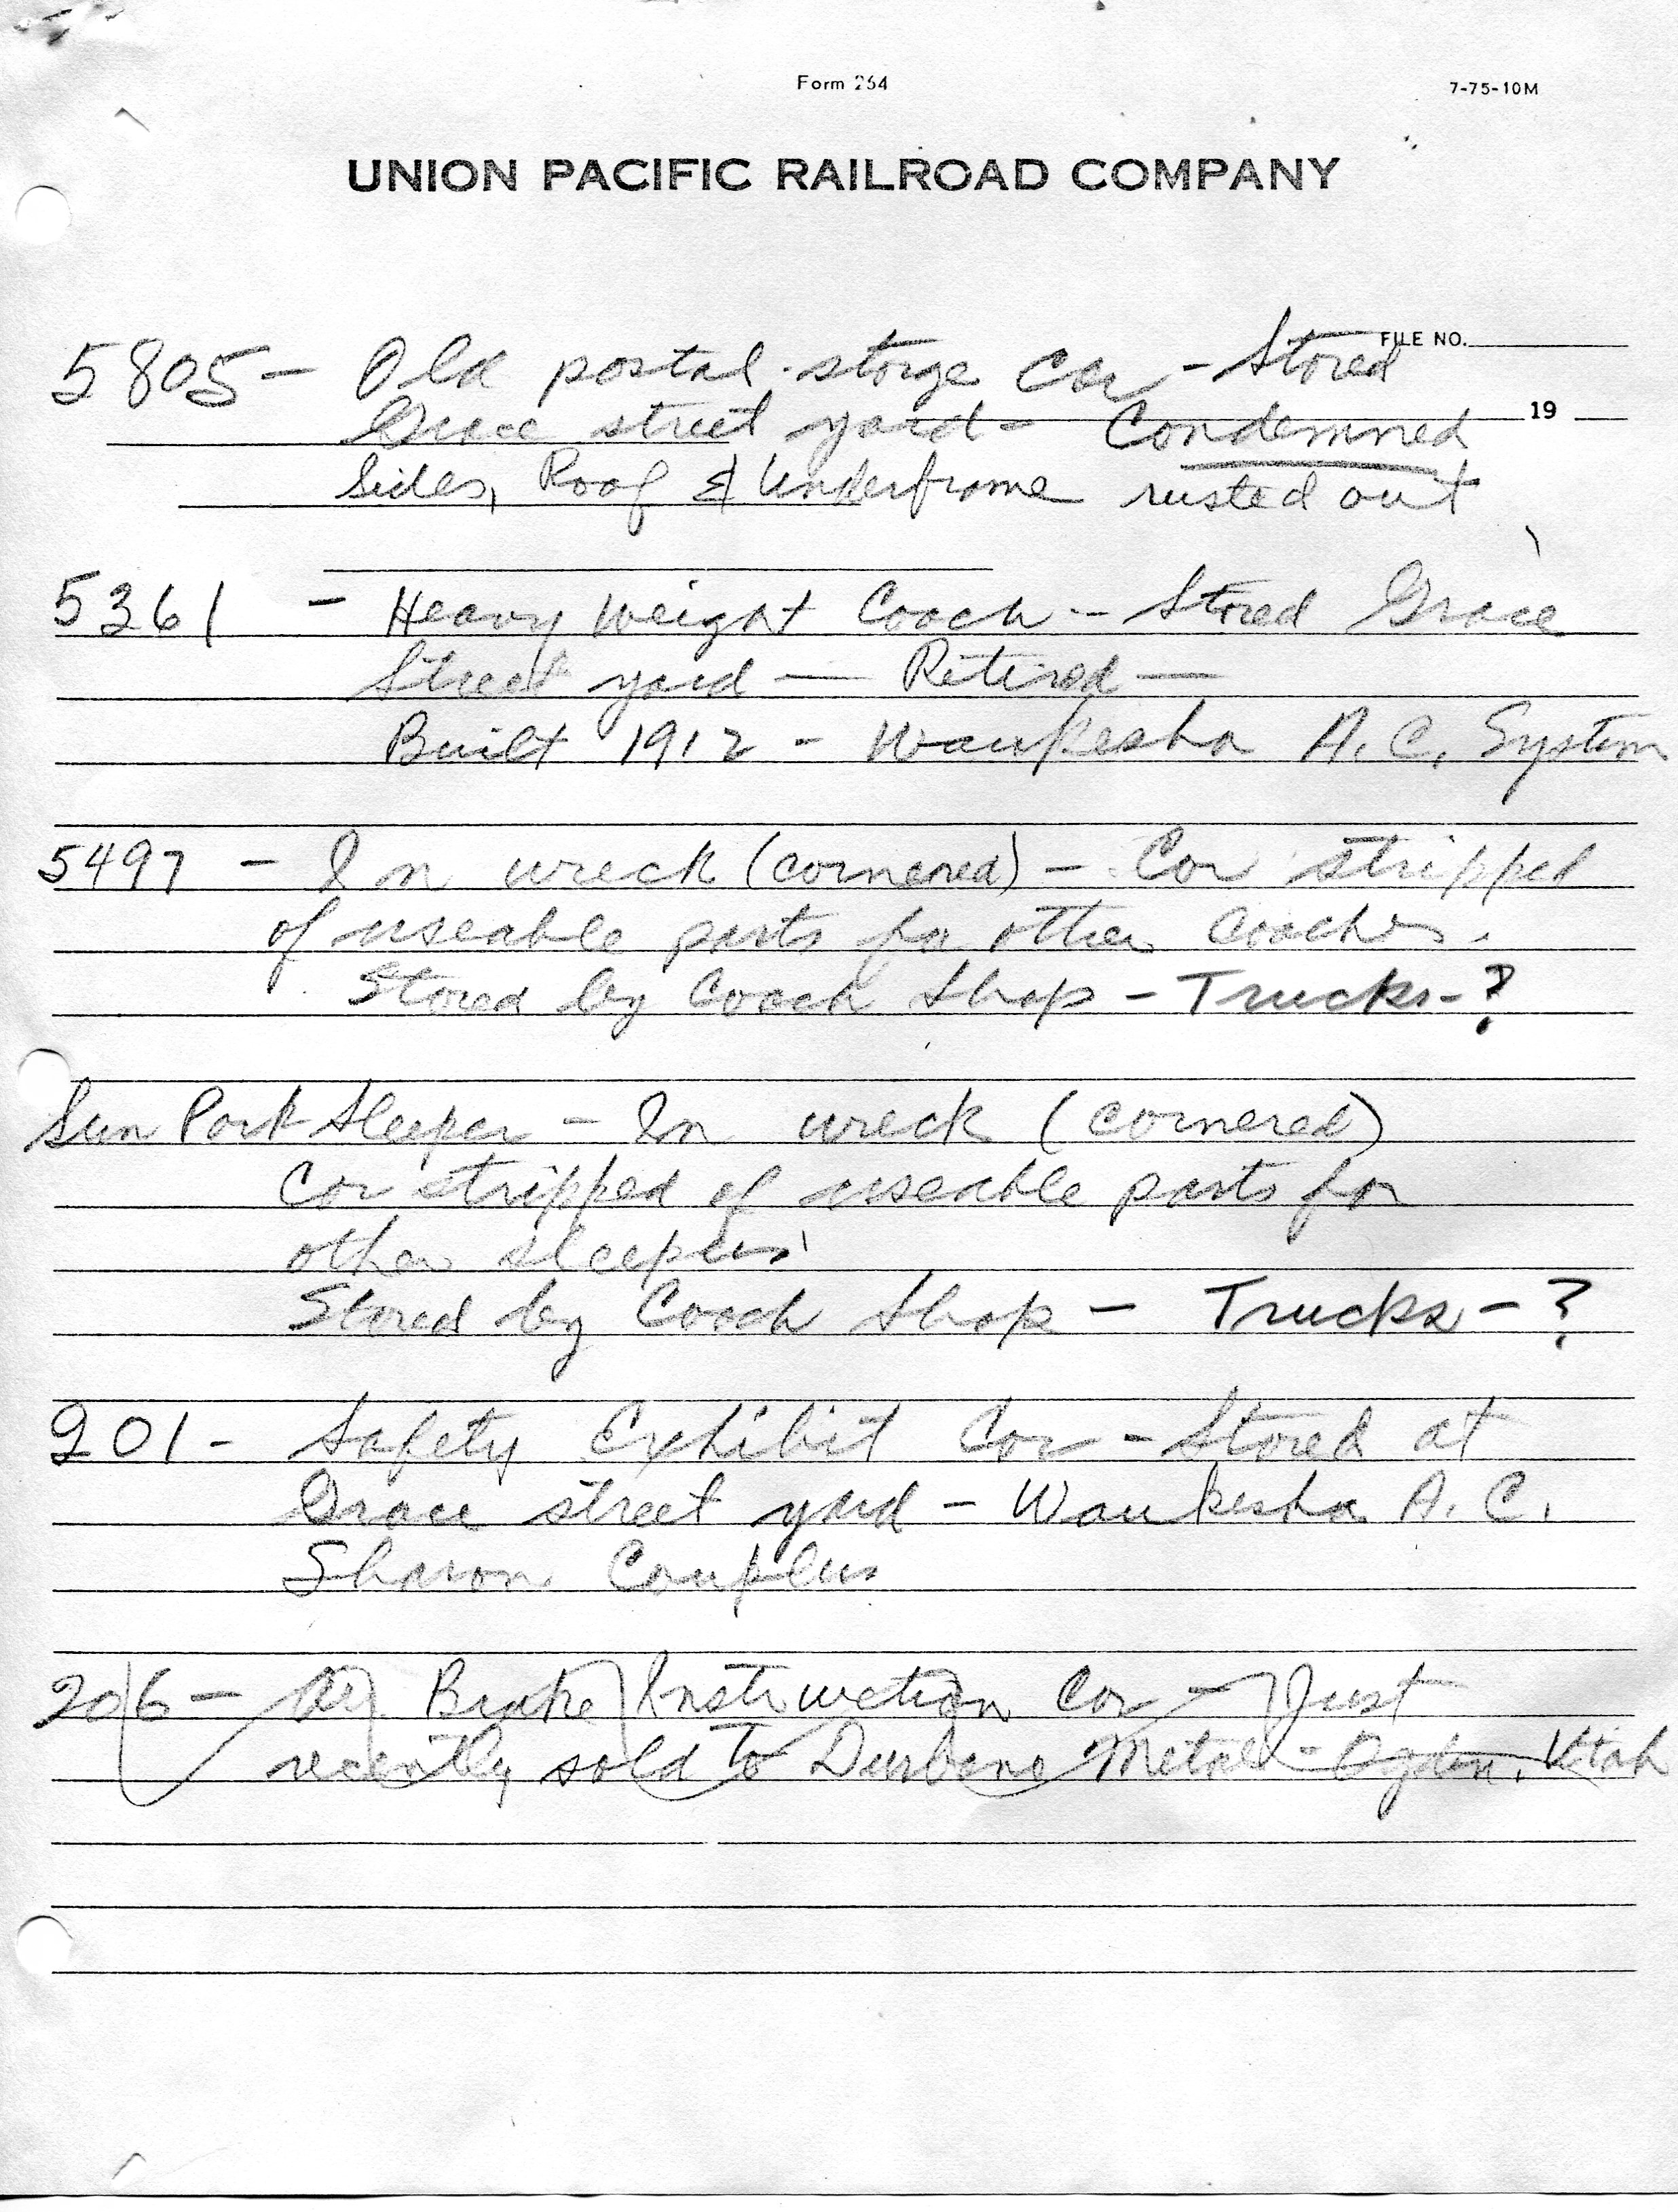 Form 264
7-75-10M
UNION PACIFIC RAILROAD COMPANY
FILE NO.
19
5805 - Old postal storge car - Stored
Grace street yard - Condemned
Sides, Roof & Underframe rusted out
5361 - Heavy weight Coach - Stored Grace
Street yard — Retired —
Built 1912 - Waukesha A.C. System
5497 - In wreck (cornered) - Car stripped
of useable parts for other coaches.
Stored by Coach Shop - Trucks - ?
Sun Park Sleeper - In wreck (cornered)
Car stripped of useable parts for
other sleepers
Stored by Coach Shop - Trucks - ?
201 - Safety Exhibit Car - Stored at
Grace street yard - Waukesha A.C.
Sharon Couplers
206 - Air Brake Instruction Car - Just
recently sold to Metal - Ogden, Utah